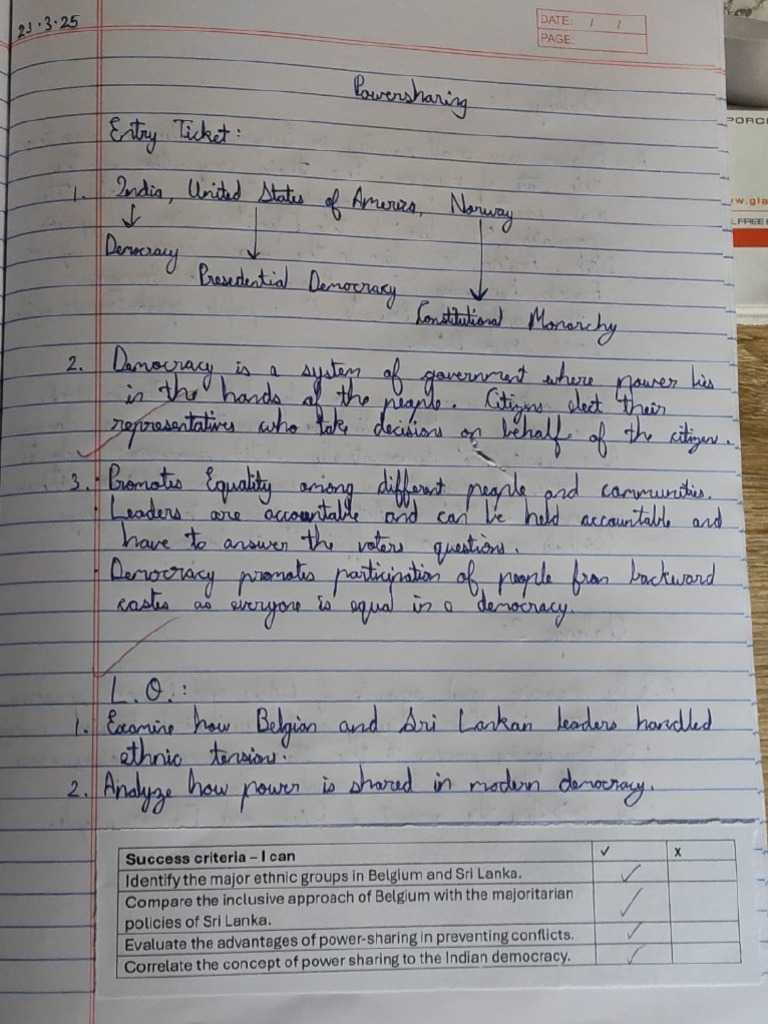 23.3.25
DATE: / /
PAGE:
Powersharing
PORC
Entry Ticket:
1. India, United States of America, Norway
Democracy
Presedential Democracy
Constitutional Monarchy
2. Democracy is a system of government where power lies
in the hands of the people. Citizens elect their
representatives who take decisions on behalf of the citizen.
3. · Promotes Equality among different people and communities.
· Leaders are accountable and can be held accountable and
have to answer the voters questions.
· Democracy promotes participation of people from backward
castes as everyone is equal in a democracy.
L.O.:
1. Examine how Belgian and Sri Lankan leaders handled
ethnic tension.
2. Analyze how power is shared in modern democracy.
Success criteria – I can ✓ x
Identify the major ethnic groups in Belgium and Sri Lanka. ✓
Compare the inclusive approach of Belgium with the majoritarian
policies of Sri Lanka. ✓
Evaluate the advantages of power-sharing in preventing conflicts. ✓
Correlate the concept of power sharing to the Indian democracy. ✓